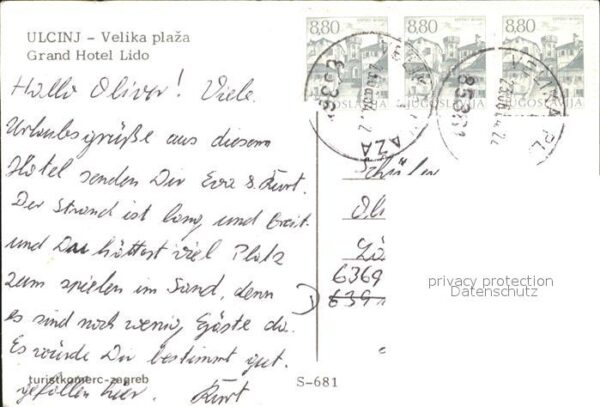 ULCINJ – Velika plaža
Grand Hotel Lido
Hallo Oliver! Viele
Urlaubsgrüße aus diesem
Hotel senden Dir Eva & Kurt.
Der Strand ist lang und breit
und Du hättest viel Platz
zum spielen im Sand, denn
es sind noch wenig Gäste da.
Es würde Dir bestimmt gut
gefallen hier. Kurt
turistkomerc-zagreb
S-681
8,80 8,80 8,80
JUGOSLAVIJA
85361
VELIKA PLAŽA
Schüler
Oli
6369
639
privacy protection
Datenschutz